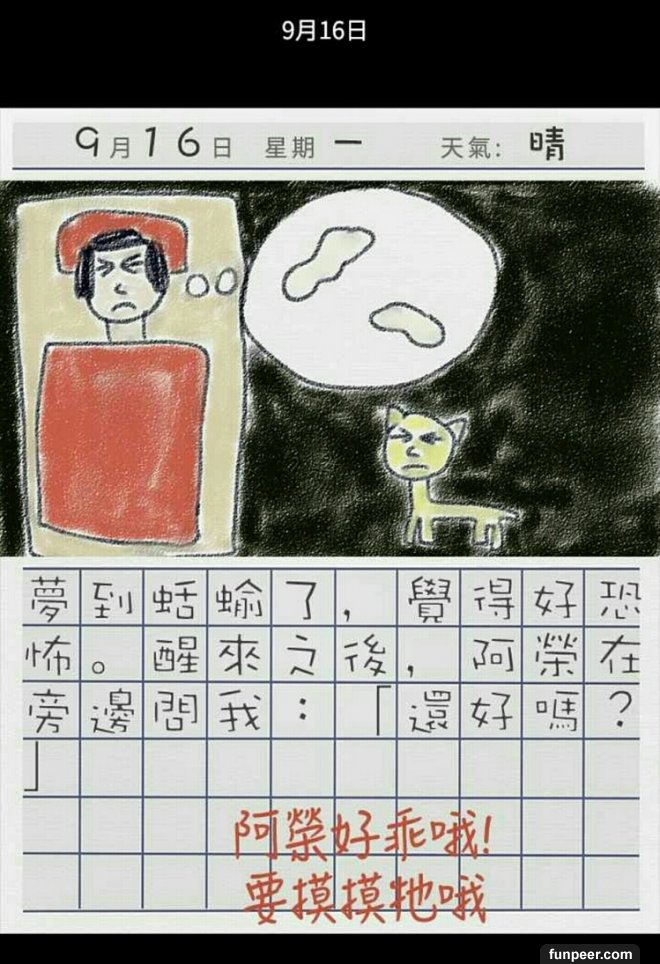 9月16日
9月16日 星期一 天氣: 晴
夢到蛞蝓了，覺得好恐
怖。醒來之後，阿榮在
旁邊問我：「還好嗎？
」
阿榮好乖哦!
要摸摸牠哦
funpeer.com